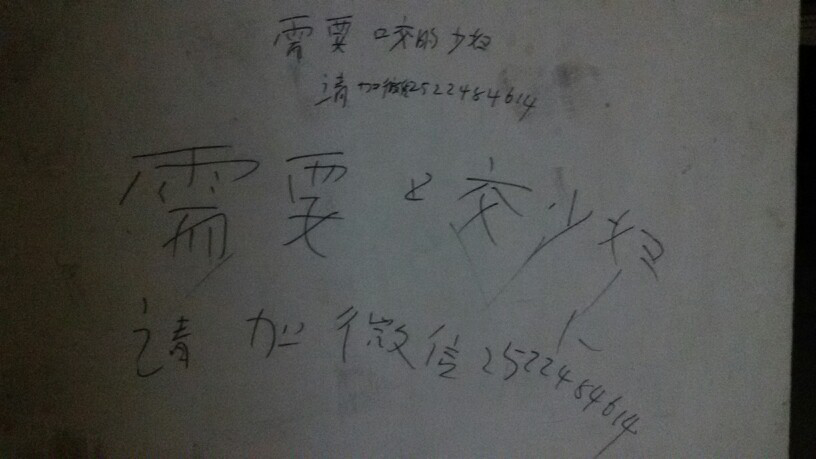 需要咬的少妇
请加微信2522484614
需要 交少妇
请加微信2522484614